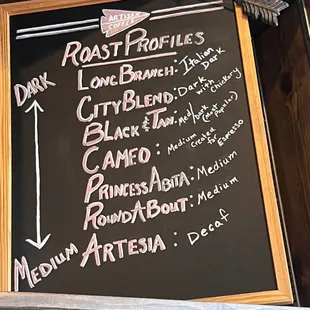 ARTISAN
COFFEE
ROAST PROFILES
DARK
LONG BRANCH: Italian Dark
CITY BLEND: Dark with Chickory
BLACK & TAN: Med/Dark (Most Popular)
CAMEO: Medium Created for Espresso
PRINCESS ABITA: Medium
ROUNDABOUT: Medium
MEDIUM
ARTESIA: Decaf